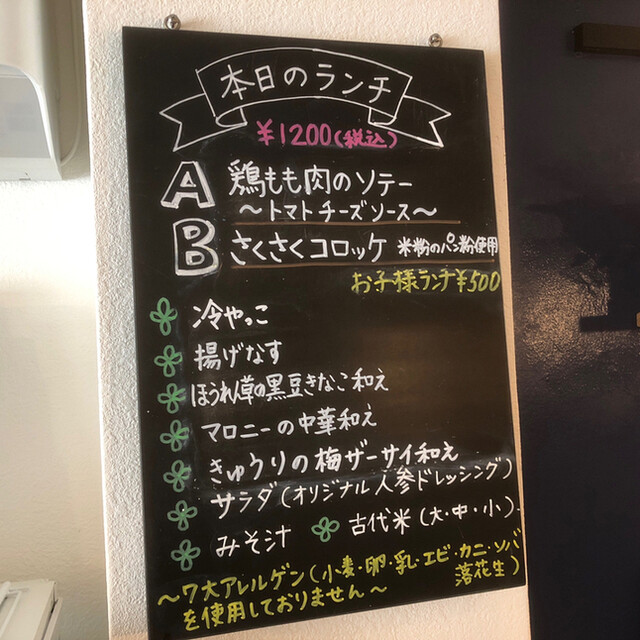 本日のランチ
¥1200(税込)
A 鶏もも肉のソテー
～トマトチーズソース～
B さくさくコロッケ 米粉のパン粉使用
お子様ランチ¥500
冷やっこ
揚げなす
ほうれん草の黒豆きなこ和え
マロニーの中華和え
きゅうりの梅ザーサイ和え
サラダ(オリジナル人参ドレッシング)
みそ汁 古代米(大・中・小)
～7大アレルゲン(小麦・卵・乳・エビ・カニ・ソバ
落花生)
を使用しておりません～